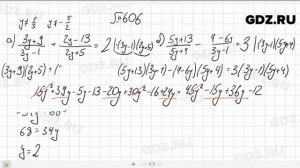 GDZ.RU
№606
y≠1/3 y≠-5/2
а) (3y+9)/(3y-1) + (2y-13)/(2y+5) = 2 |·(3y-1)(2y+5)
б) (5y+13)/(5y+4) - (4-6y)/(3y-1) = 3 |·(3y-1)(5y+4)
(3y+9)(2y+5)+(
(5y+13)(3y-1)-(4-6y)(5y+4)=3(3y-1)(5y+4)
15y²+39y-5y-13-20y+30y²-16+24y=45y²-15y+36y-12
68=34y
y=2
GDZ.RU